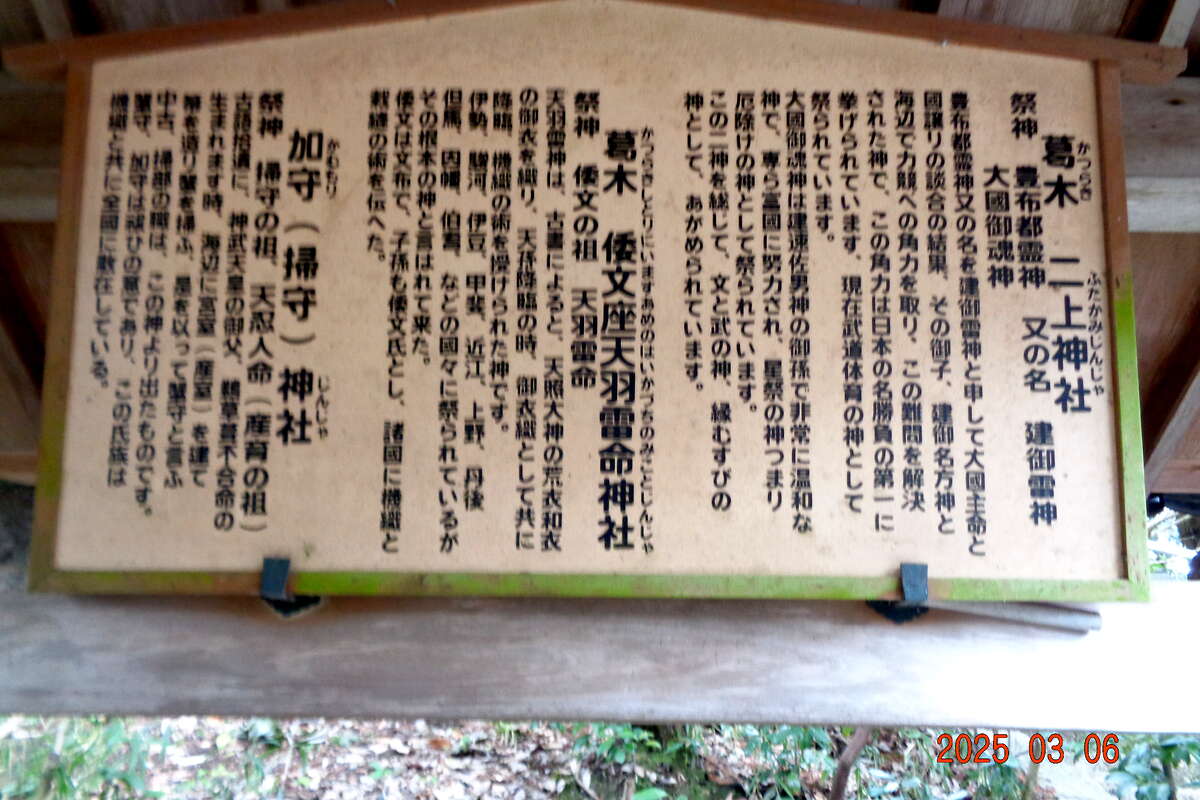 かつらぎ ふたかみじんじゃ
葛木 二上神社
祭神 豊布都霊神 又の名 建御雷神
大國御魂神
豊布都霊神又の名を建御雷神と申して大國主命と
國譲りの談合の結果、その御子、建御名方神と
海辺で力競べの角力を取り、この難問を解決
された神で、この角力は日本の名勝負の第一に
挙げられています。現在武道体育の神として
祭られています。
大國御魂神は建速佐男神の御孫で非常に温和な
神で、専ら富國に努力され、星祭の神つまり
厄除けの神として祭られています。
この二神を総じて、文と武の神、縁むすびの
神として、あがめられています。
かつらきしとりにいますあめのはいかづちのみことじんじゃ
葛木 倭文座天羽雷命神社
祭神 倭文の祖 天羽雷命
天羽雷神は、古書によると、天照大神の荒衣和衣
の御衣を織り、天孫降臨の時、御衣織として共に
降臨、機織の術を操けられた神です。
伊勢、駿河、伊豆、甲斐、近江、上野、丹後
但馬、因幡、伯耆、などの國々に祭られているが
その根本の神と言はれて来た。
倭文は文布で、子孫も倭文氏とし、諸國に機織と
裁縫の術を伝へた。
かむもり じんじゃ
加守（掃守）神社
祭神 掃守の祖、天忍人命（産育の祖）
古語拾遺に、神武天皇の御父、鵜草葺不合命の
生まれます時、海辺に宮室（産室）を建て
箒を造り蟹を掃ふ、是を以って蟹守と言ふ
中古、掃部の職は、この神より出たものです。
蟹守、加守は禊ひの意であり、この氏族は
機織と共に全國に散在している。
2025 03 06